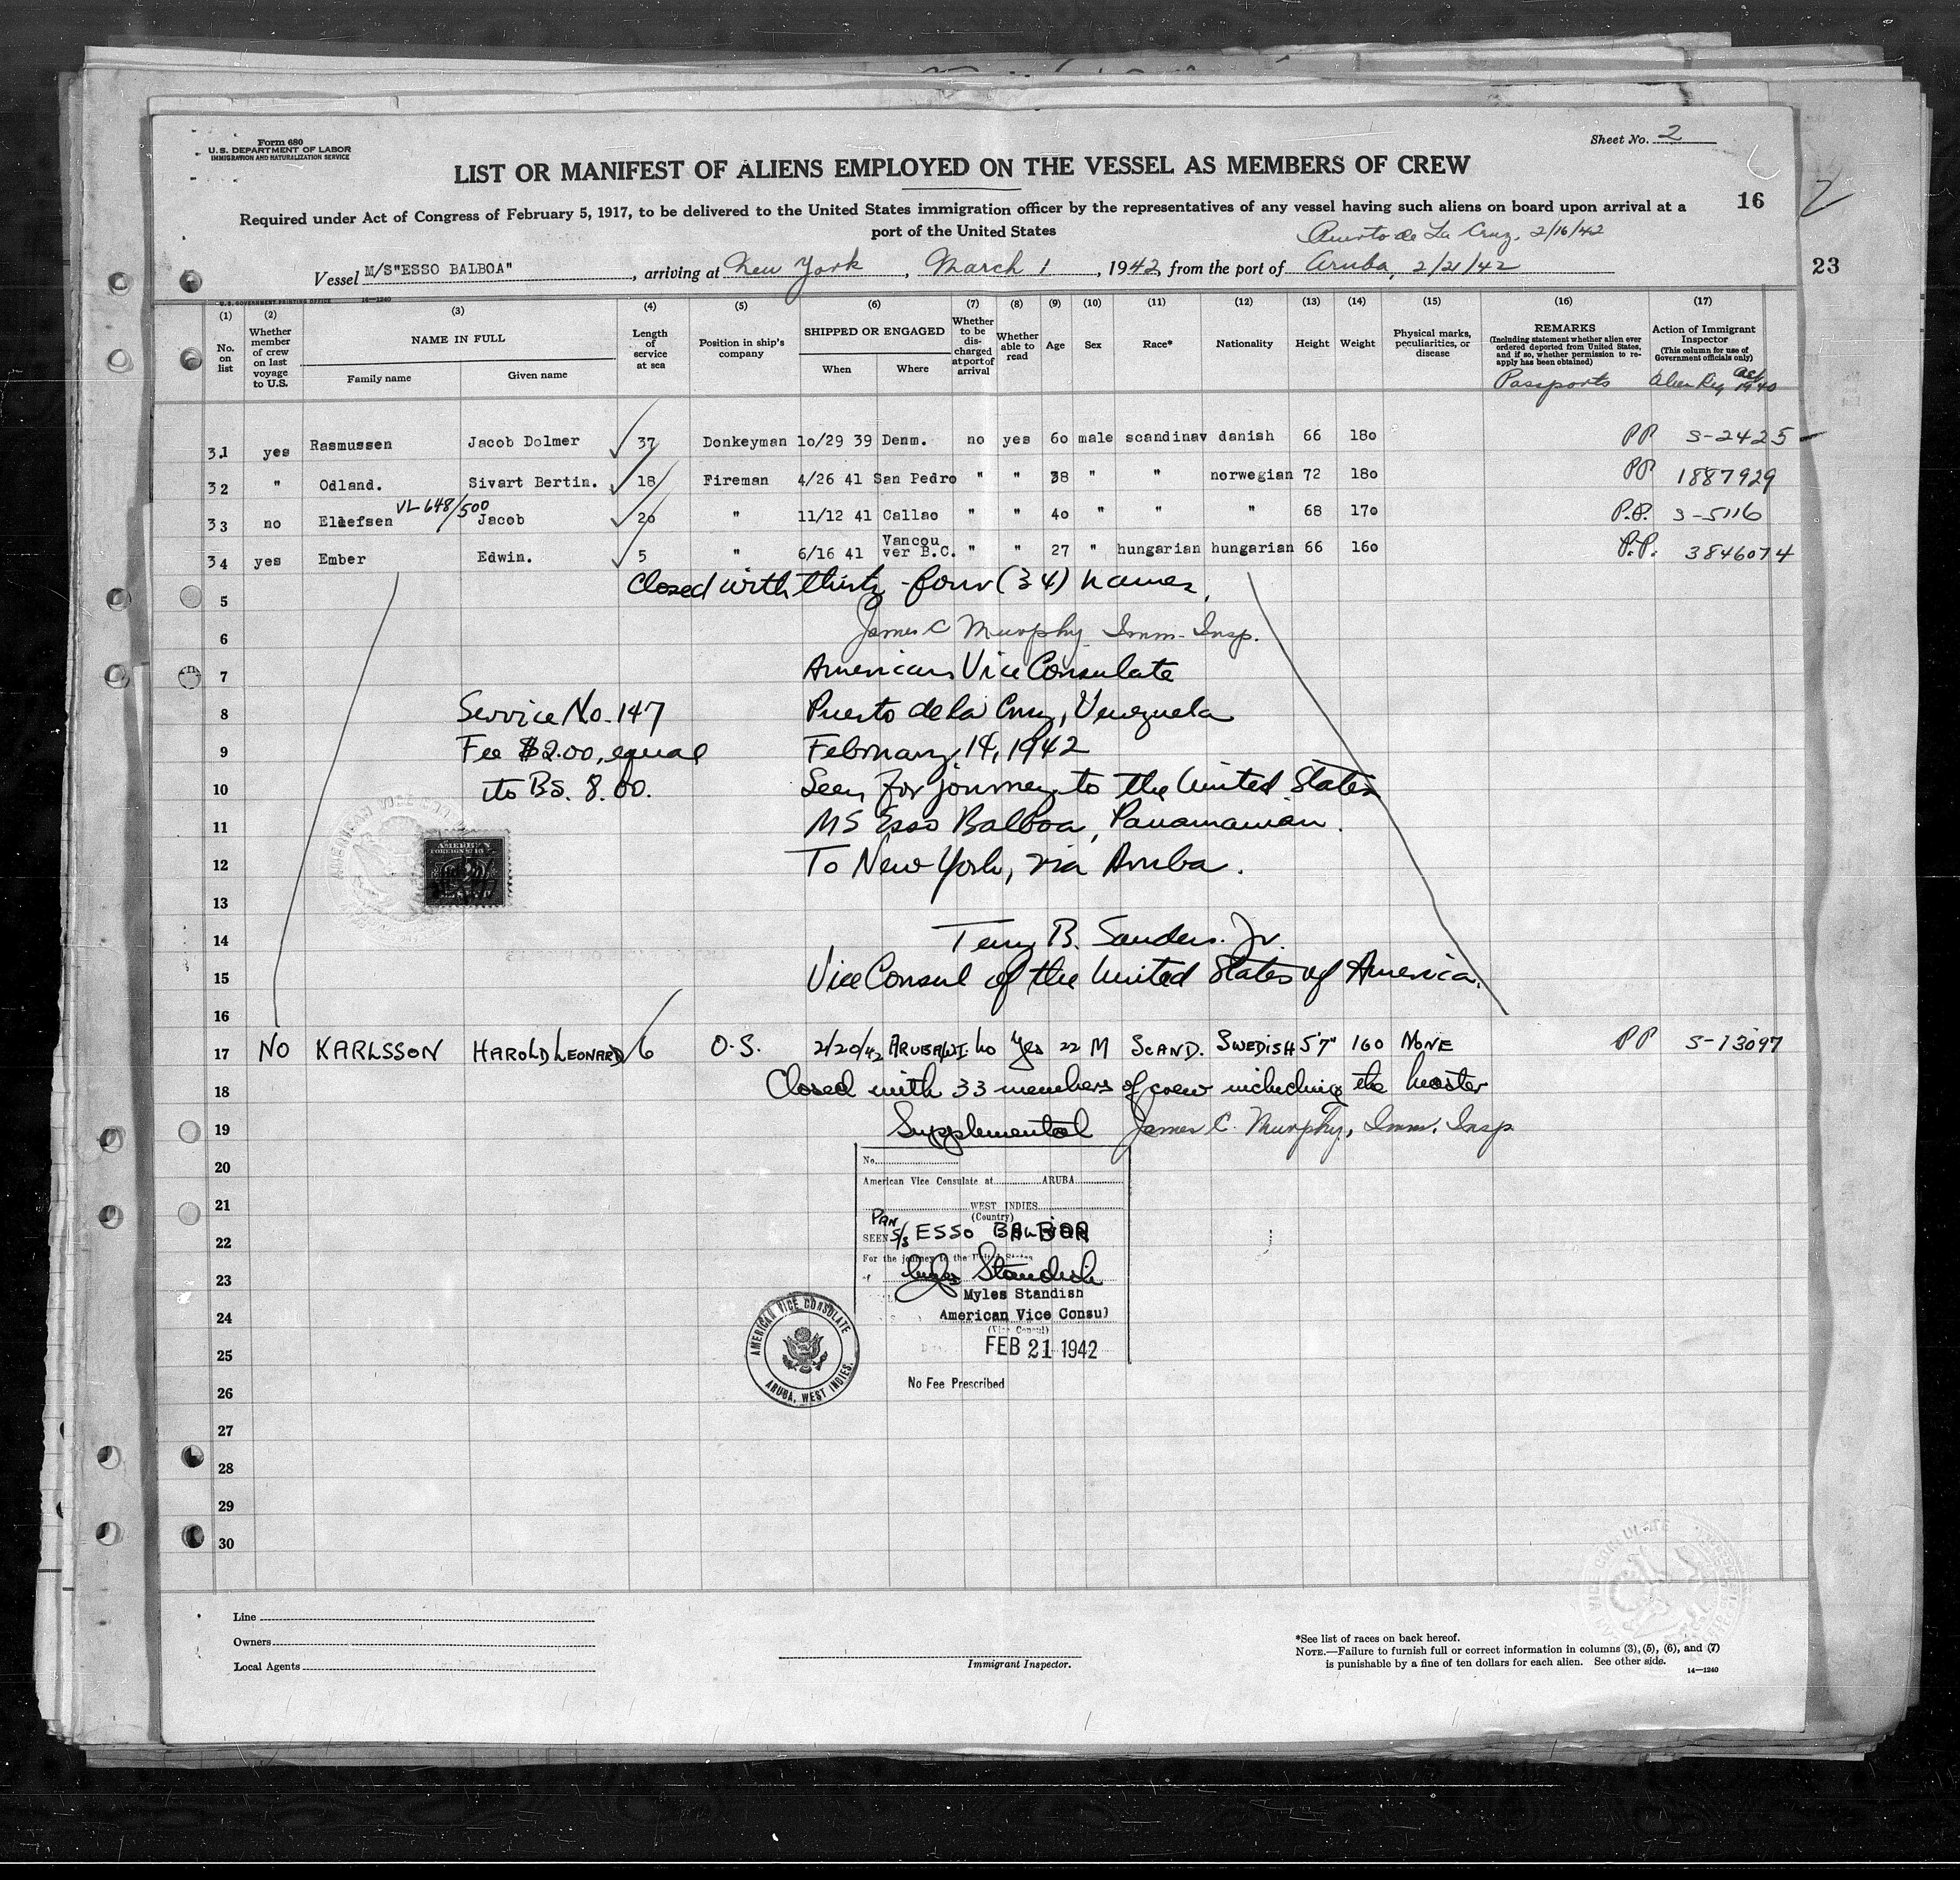 Form 680
U.S. DEPARTMENT OF LABOR
IMMIGRATION AND NATURALIZATION SERVICE
Sheet No. 2
LIST OR MANIFEST OF ALIENS EMPLOYED ON THE VESSEL AS MEMBERS OF CREW
16
2
Required under Act of Congress of February 5, 1917, to be delivered to the United States immigration officer by the representatives of any vessel having such aliens on board upon arrival at a
port of the United States
Puerto de La Cruz, 2/16/42
Vessel M/S"ESSO BALBOA", arriving at New York, March 1, 1942, from the port of Aruba, 2/21/42
23
U.S. GOVERNMENT PRINTING OFFICE 14—1240
(1) No. on list
(2) Whether member of crew on last voyage to U.S.
(3) NAME IN FULL
Family name
Given name
(4) Length of service at sea
(5) Position in ship's company
(6) SHIPPED OR ENGAGED
When
Where
(7) Whether to be discharged at port of arrival
(8) Whether able to read
(9) Age
(10) Sex
(11) Race*
(12) Nationality
(13) Height
(14) Weight
(15) Physical marks, peculiarities, or disease
(16) REMARKS
(Including statement whether alien ever ordered deported from United States, and if so, whether permission to re-apply has been obtained)
Passports
(17) Action of Immigrant Inspector
(This column for use of Government officials only)
Alien Reg Act 1940
31 yes Rasmussen Jacob Dolmer 37 Donkeyman 10/29 39 Denm. no yes 60 male scandinav danish 66 180 PP S-2425
32 " Odland. Sivart Bertin. 18 Fireman 4/26 41 San Pedro " " 38 " " norwegian 72 180 PP 1887929
VL 648/500
33 no Ellefsen Jacob 20 " 11/12 41 Callao " " 40 " " " 68 170 P.P. S-5116
34 yes Ember Edwin. 5 " 6/16 41 Vancouver B.C. " " 27 " hungarian hungarian 66 160 P.P. 3846074
Closed with thirty-four (34) names.
5
6 James C Murphy Imm. Insp.
7 American Vice Consulate
8 Service No. 147 Puerto de la Cruz, Venezuela
9 Fee $2.00, equal February 14, 1942
10 to Bs. 8.00. Seen for journey to the United States
11 MS Esso Balboa, Panamanian.
12 To New York, via Aruba.
AMERICAN
13
14 Terry B. Sanders. Jr.
15 Vice Consul of the United States of America.
16
17 NO KARLSSON HAROLD LEONARD 6 O.S. 2/20/42 ARUBA W.I. No Yes 22 M SCAND. SWEDISH 5'7" 160 NONE PP S-13097
18 Closed with 33 members of crew including the master
19 Supplemental James C. Murphy, Imm. Insp
20 No.
American Vice Consulate at ARUBA
21 WEST INDIES
(Country)
22 SEEN Pan S/S ESSO BALBOA
For the journey to the United States
23 Myles Standish
Myles Standish
24 American Vice Consul
(Vice Consul)
25 FEB 21 1942
AMERICAN VICE CONSULATE
ARUBA, WEST INDIES.
26 No Fee Prescribed
27
28
29
30
Line
Owners
Local Agents
Immigrant Inspector.
*See list of races on back hereof.
NOTE.—Failure to furnish full or correct information in columns (3), (5), (6), and (7)
is punishable by a fine of ten dollars for each alien. See other side.
14—1240